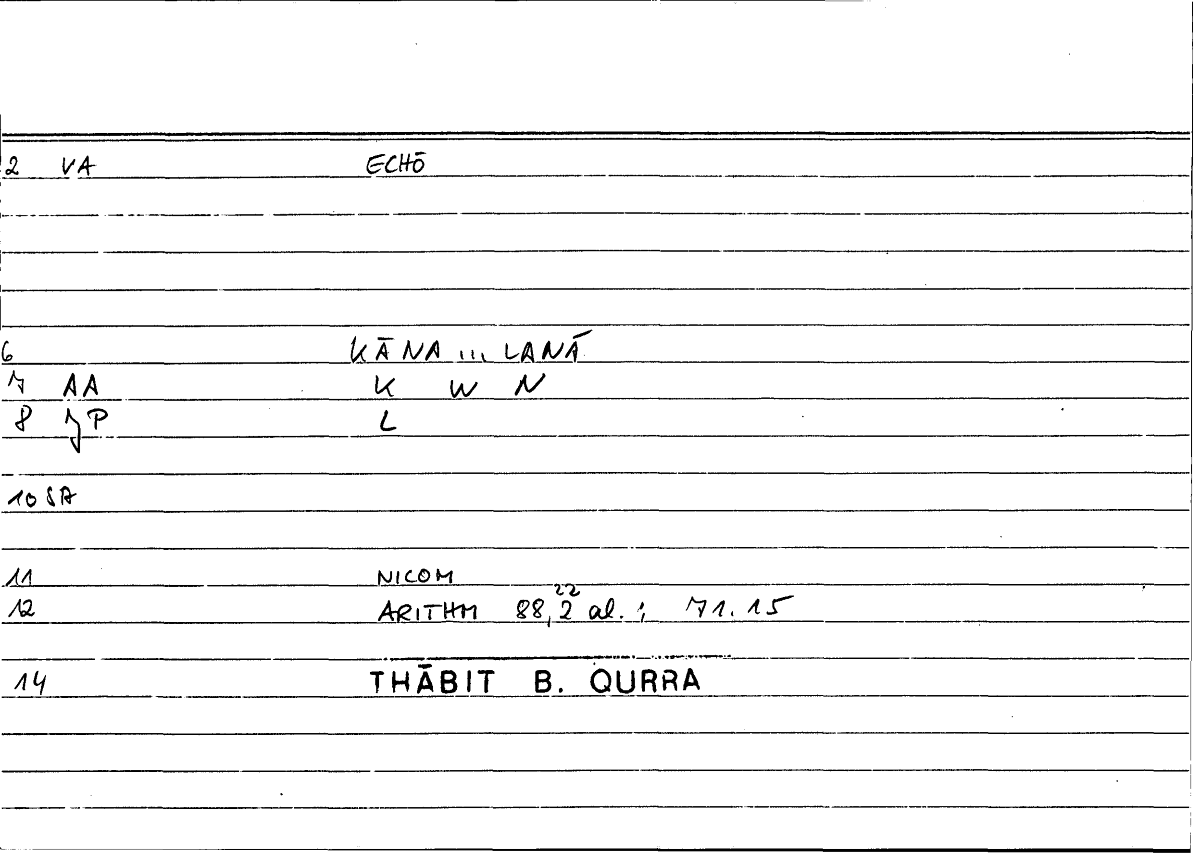 2 VA ECHŌ
6 KĀNA ... LANĀ
7 AA K W N
8 JP L
10 SA
11 NICOM
22
12 ARITHM 88,2 al. ; 71.15
14 THĀBIT B. QURRA